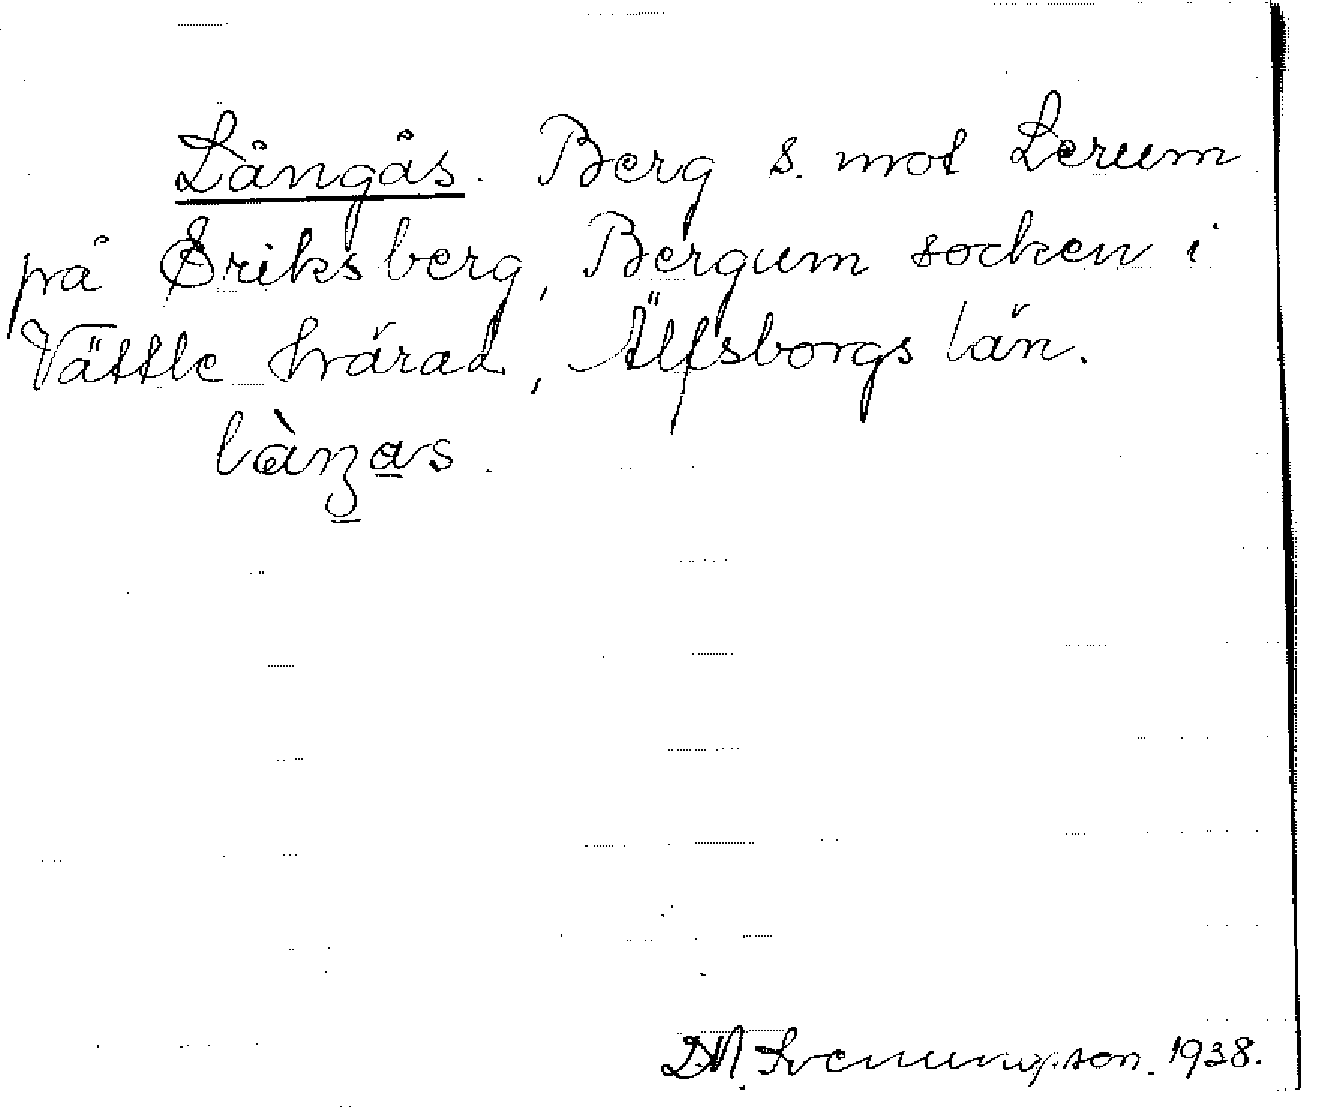 Långås. Berg s. mot Lerum
på Eriksberg, Bergum socken i
Vättle härad, Älfsborgs län.
1938.